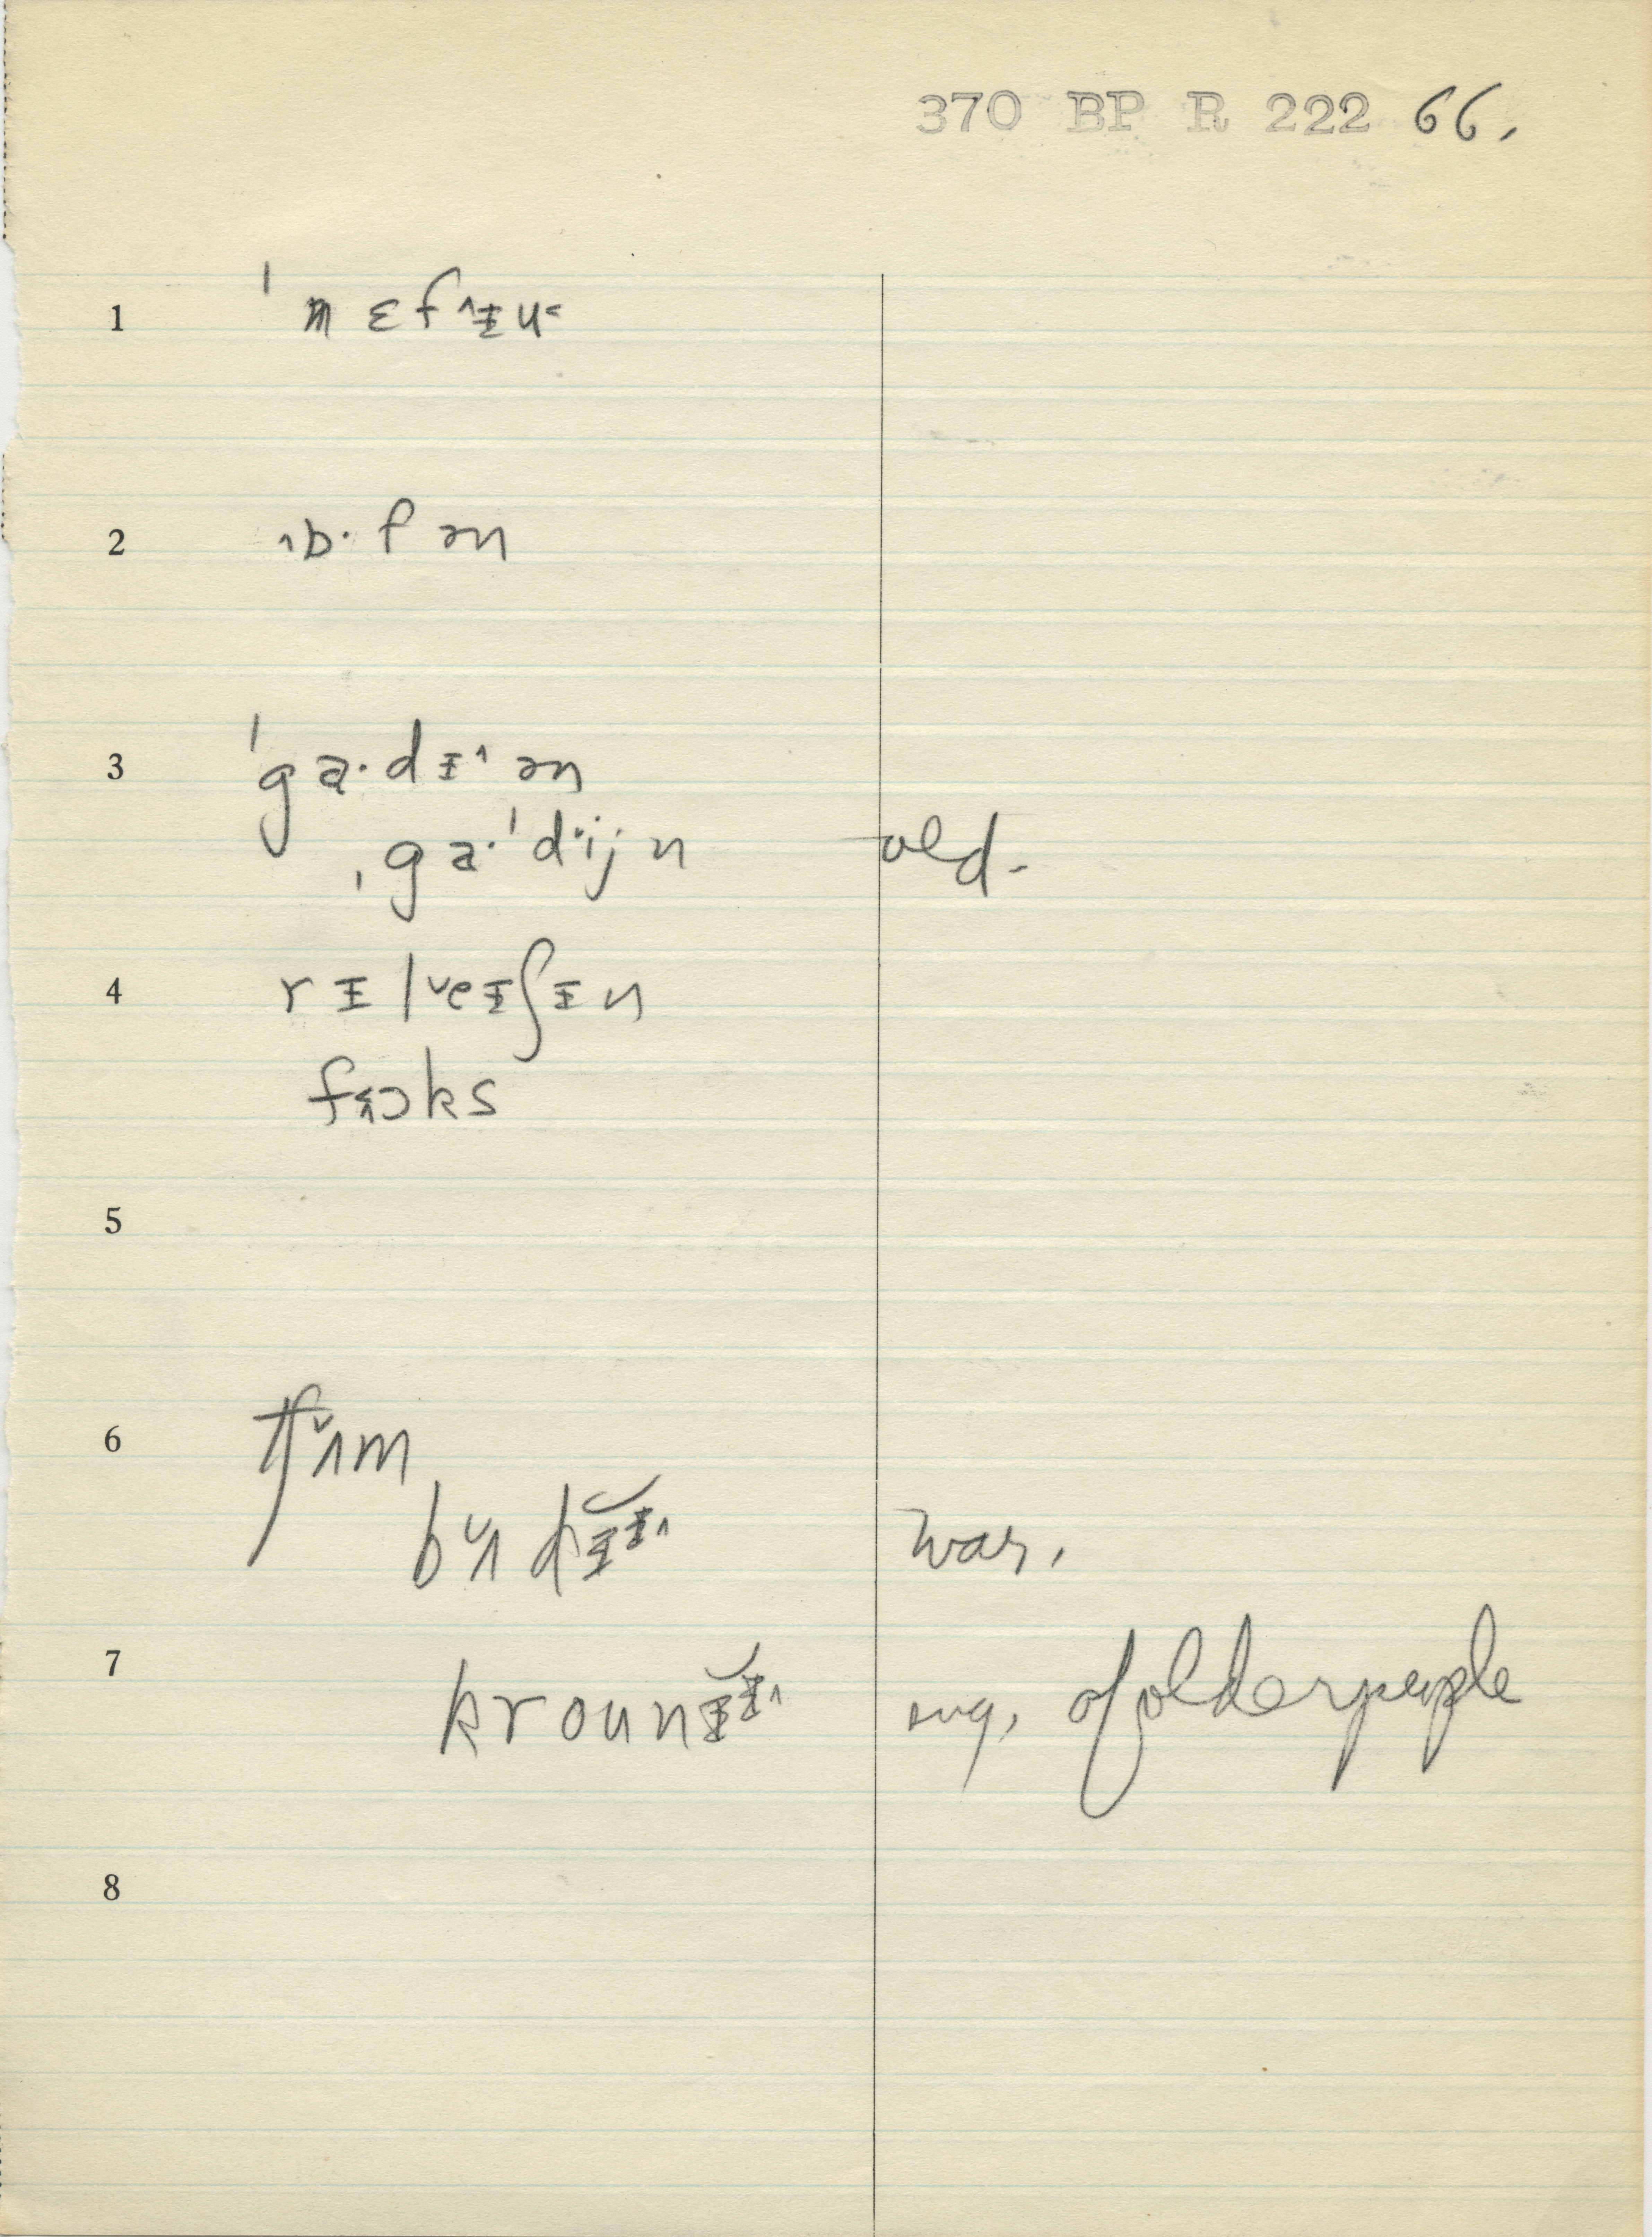 370 BP R 222 66.
1 ˈnɛf˄ɪu˂
2 ɔ·fən
3 ˈga·dɪ˄ən
ˌga·ˈdij n old.
4 rɪl˅eɪʃɪn
foks
5
6 tʃʌ˅m
bʌ˅dɪɪ˄ war.
7 krounɪɪ˄ sug. of older people
8